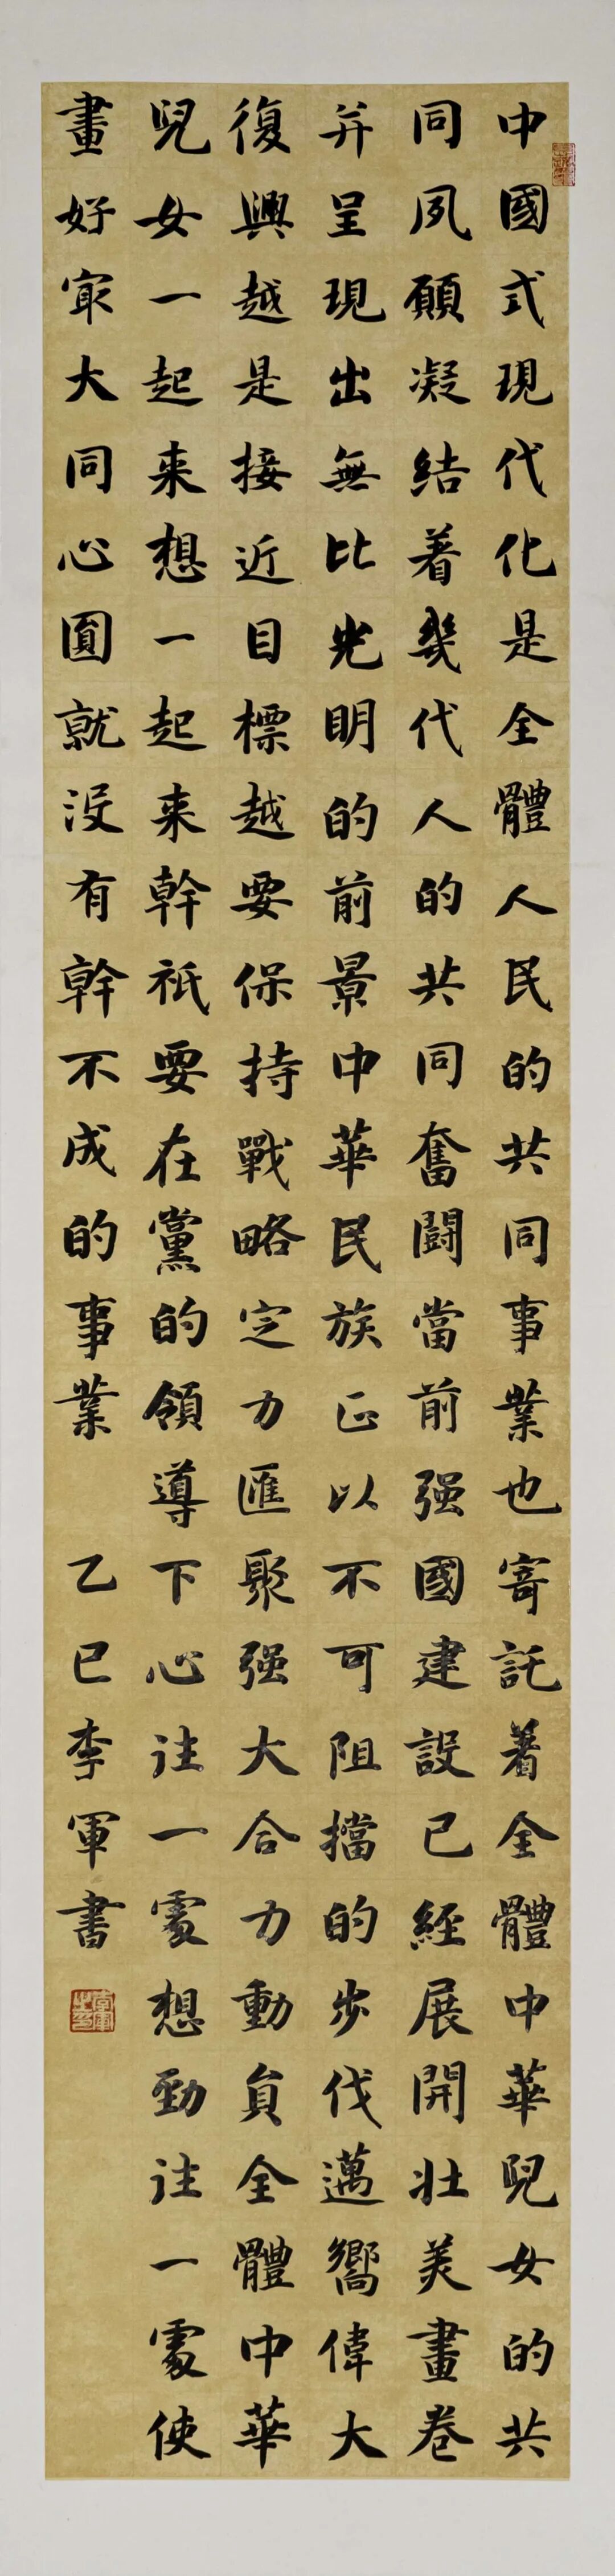 中國式現代化是全體人民的共同事業也寄託著全體中華兒女的共
同夙願凝結著幾代人的共同奮闘當前强國建設已經展開壯美畫卷
并呈現出無比光明的前景中華民族正以不可阻擋的步伐邁嚮偉大
復興越是接近目標越要保持戰略定力匯聚强大合力動員全體中華
兒女一起来想一起来幹祇要在黨的領導下心往一處想勁往一處使
畫好冣大同心圓就没有幹不成的事業 乙巳李軍書